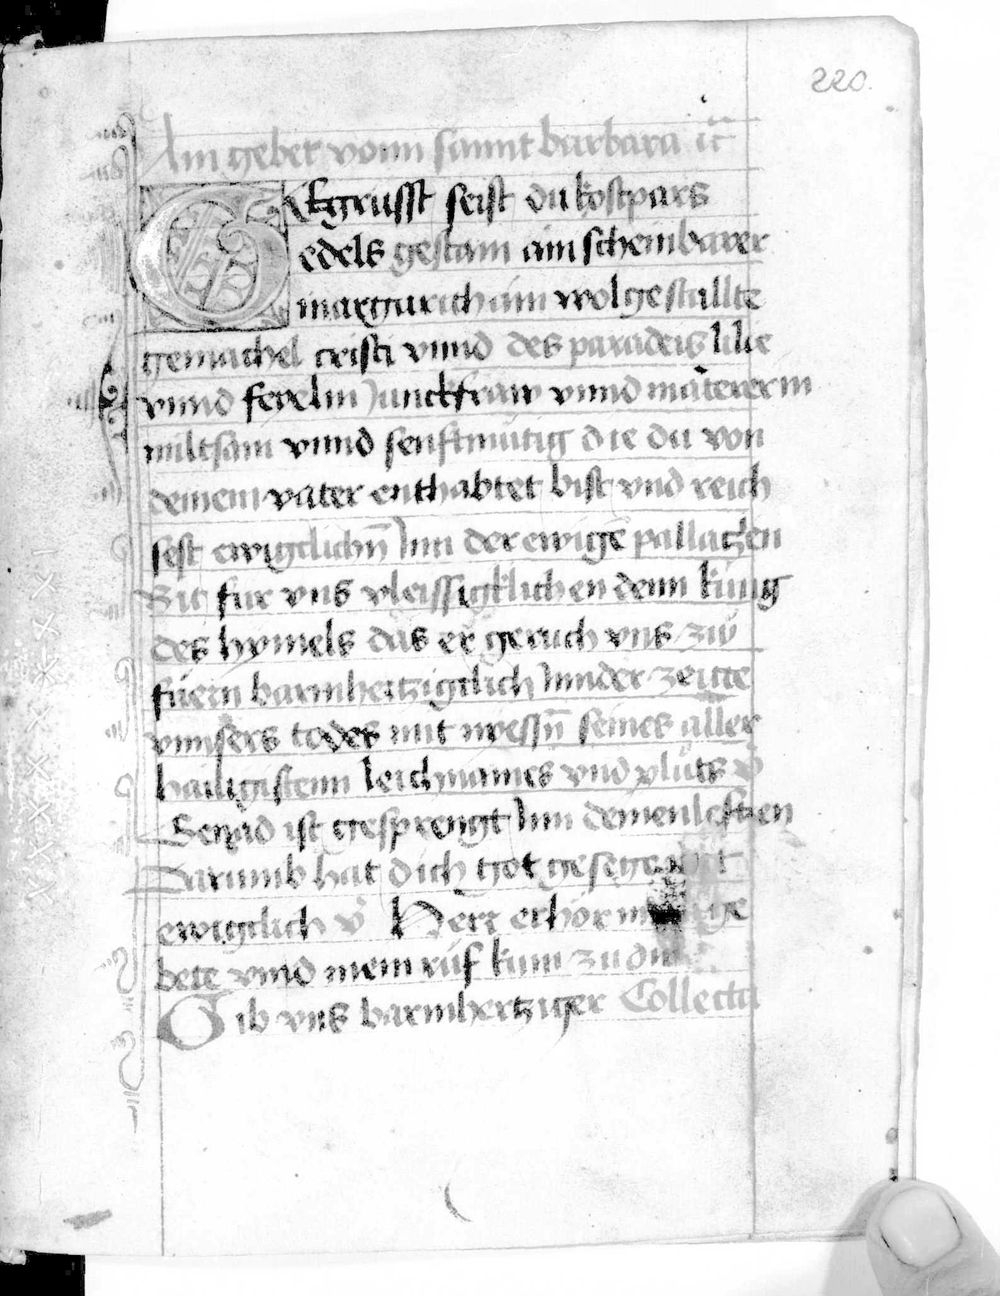 220.
Ain gebet vonn sannt barbara
Gegrüsst seist du kostpars
edels gestain ain scheinbarer
margarith ain wolgestallte
gemachel cristi vnnd des paradeis lilie
vnnd feyelin Junckfraw vnnd matererin
miltsam vnnd senftmütig die du von
deinem vater enthabtet bist vnd reich
sest ewigclichñ Inn der ewigē pallatzen
Bit für vns vleissigklichen denn küng
des hymels das er geruch vns zw
füern barmhertzigclich Innder zeitte
vnnsers todes mit niessñ seines aller
hailigistenn leichnames vnd pluts v̄
Genad ist gesprengt Inn deinen leftzen
Darumb hat dich got gesegennt
ewigclich v̄ Herr erhör mein ge
bete vnnd mein rüf kum zu dir
Gib vns barmhertziger Collecta